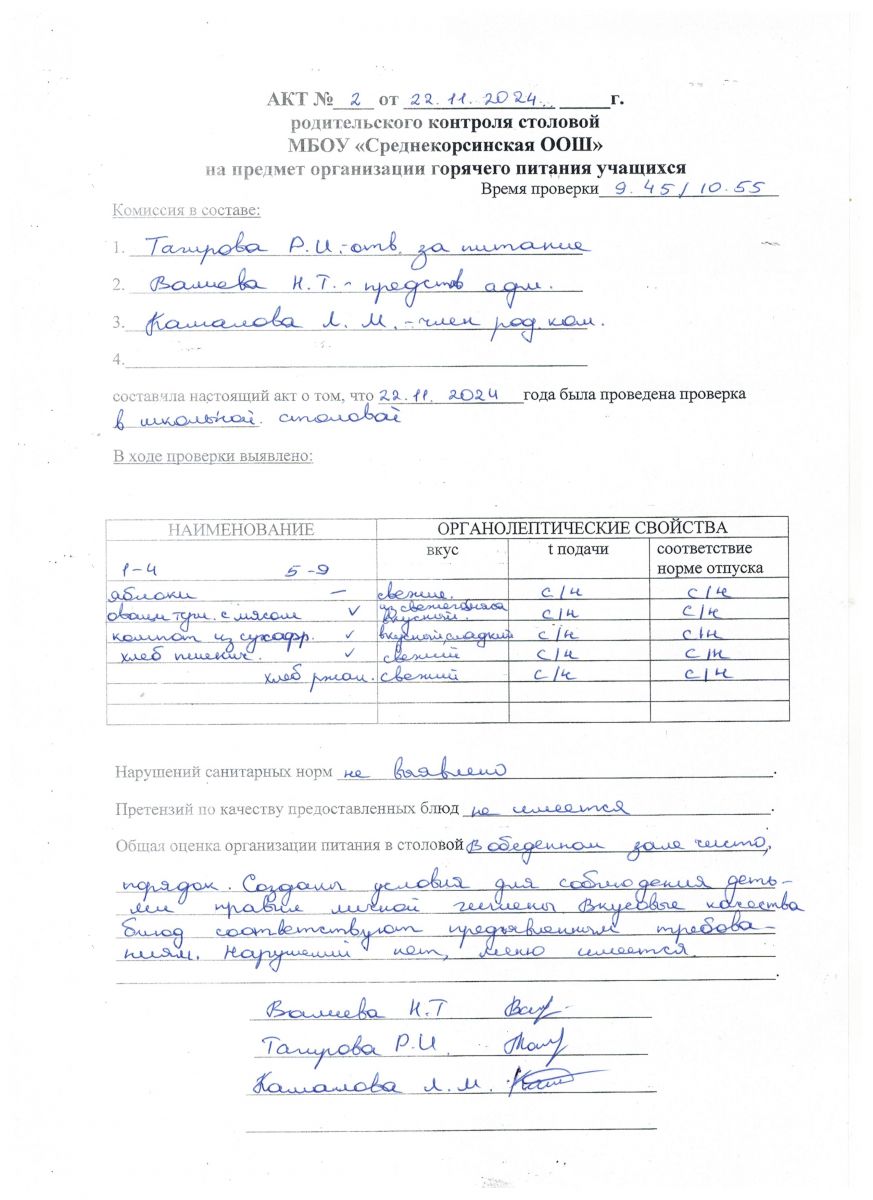 АКТ № 2 от 22.11.2024 г.
родительского контроля столовой
МБОУ «Среднекорсинская ООШ»
на предмет организации горячего питания учащихся
Время проверки 9.45/10.55
Комиссия в составе:
1. Тагирова Р.И.-отв. за питание
2. Валиева Н.Т.- предств адм.
3. Камалова Л.М.-член род.ком.
4.
составила настоящий акт о том, что 22.11. 2024 года была проведена проверка
в школьной столовой
В ходе проверки выявлено:
НАИМЕНОВАНИЕ ОРГАНОЛЕПТИЧЕСКИЕ СВОЙСТВА
вкус t подачи соответствие
1-4 5-9 норме отпуска
яблоки — свежие. с/н с/н
овощи туш. с мясом ✓ вкусный. с/н с/н
компот из сухофр. ✓ вкусный,сладкий с/н с/н
хлеб пшенич. ✓ свежий с/н с/н
хлеб ржан. свежий с/н с/н
Нарушений санитарных норм не выявлено.
Претензий по качеству предоставленных блюд не имеется.
Общая оценка организации питания в столовой В обеденном зале чисто,
порядок. Созданы условия для соблюдения деть-
ми правил личной гигиены. Вкусовые качества
блюд соответствуют предъявленным требова-
ниям. Нарушений нет, меню имеется.
Валиева Н.Т
Тагирова Р.И.
Камалова Л.М.